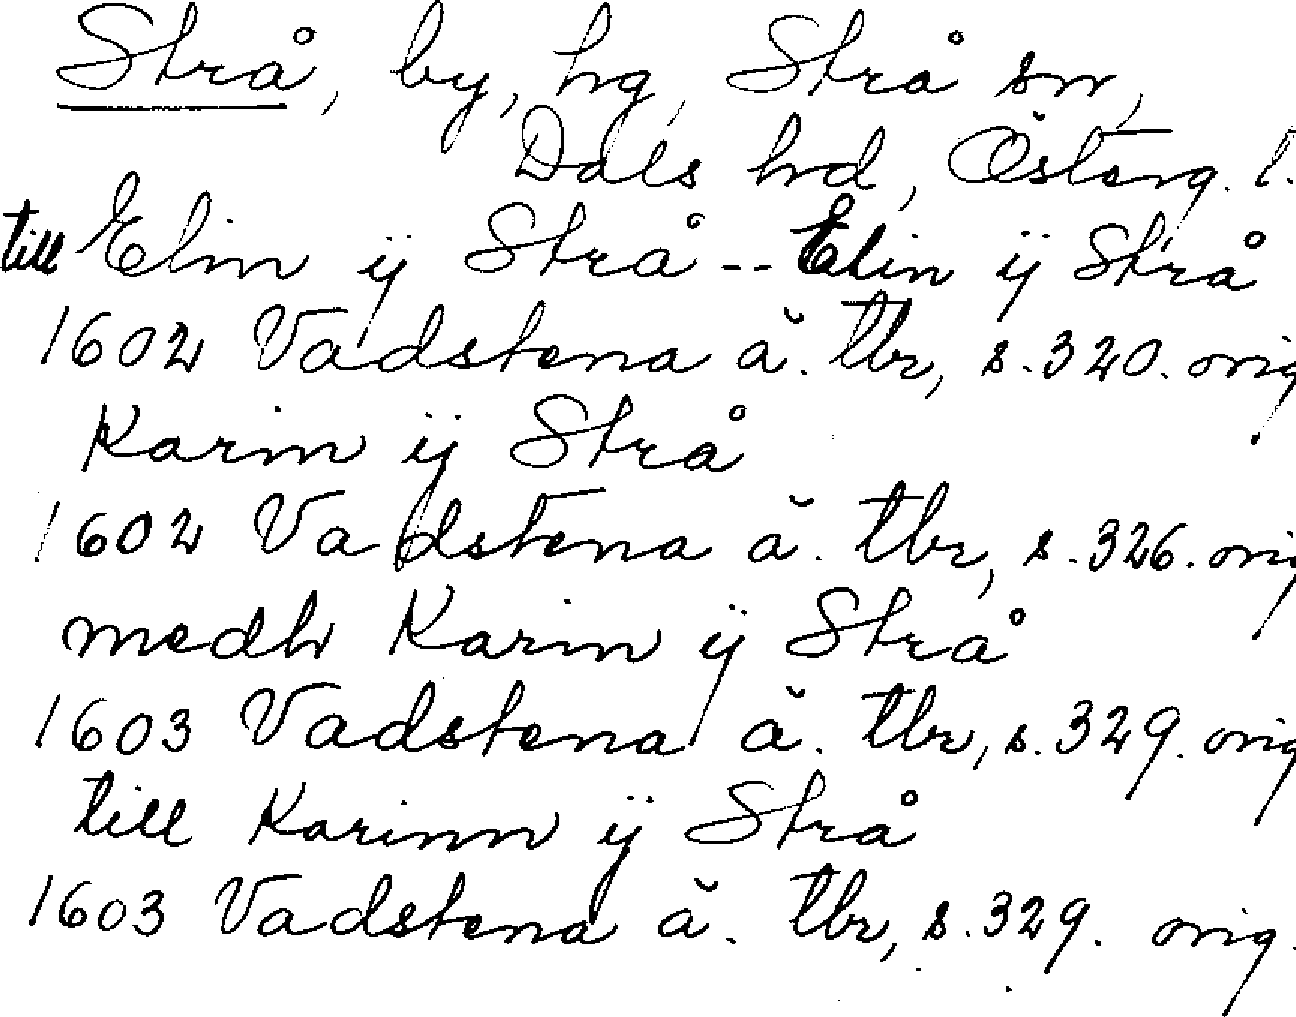 Strå, by, hg, Strå sn,
Dals hd, Österg. l.
till Elin ÿ Strå -- Elin ÿ Strå
1602 Vadstena ä. tbr, s. 320. orig
Karin ÿ Strå
1602 Vadstena ä. tbr, s. 326. orig
medh Karin ÿ Strå
1603 Vadstena ä. tbr, s. 329. orig
till Karinn ÿ Strå
1603 Vadstena ä. tbr, s. 329. orig.